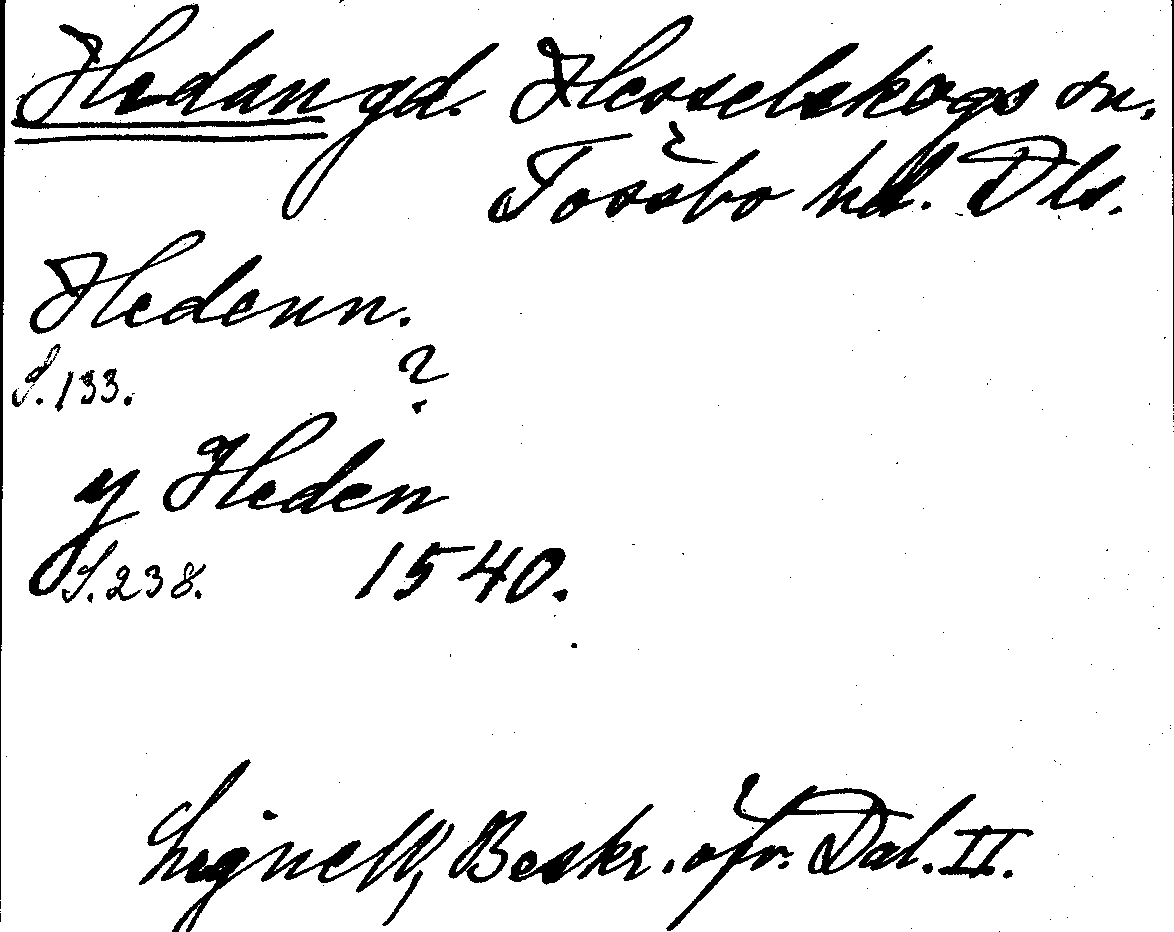 Hedan gd. Hesselskogs sn.
Tössbo hd. Dls.
Hedenn.
S. 133. ?
y Heden
S. 238. 1540.
Lignell, Beskr. öfr. Dal. II.